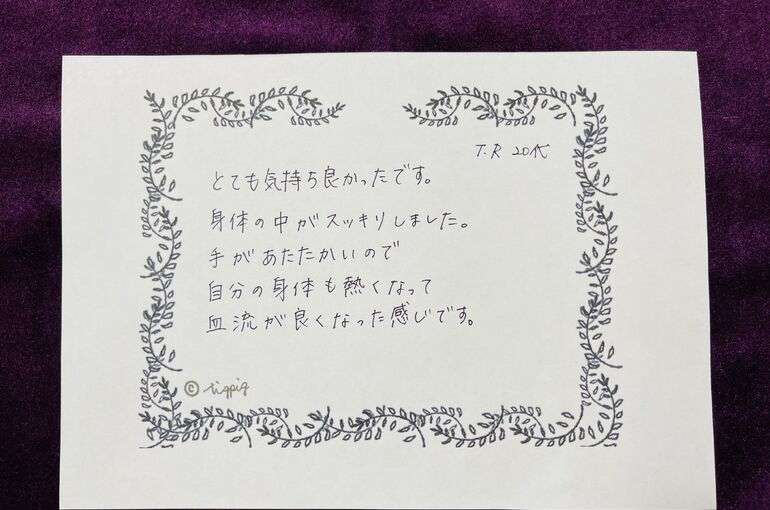 T.R 20代
とても気持ち良かったです。
身体の中がスッキリしました。
手があたたかいので
自分の身体も熱くなって
血流が良くなった感じです。
© tigpig